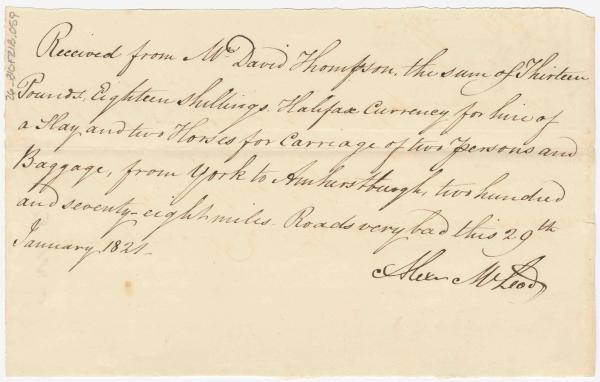 Received from Mr David Thompson, the sum of Thirteen
Pounds, Eighteen Shillings Halifax Currency for hire of
a Slay and two Horses for Carriage of two Persons and
Baggage, from York to Amherstburgh, two hundred
and seventy-eight miles. Roads very bad this 29th
January 1821.
Alexr McLeod